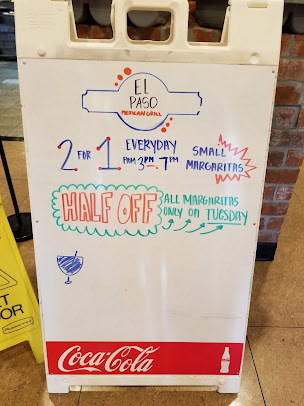 EL
PASO
MEXICAN GRILL
2 FOR 1 EVERYDAY
FROM 3PM - 7PM
SMALL
MARGARITAS
HALF OFF
ALL MARGARITAS
ONLY ON TUESDAY
Coca-Cola